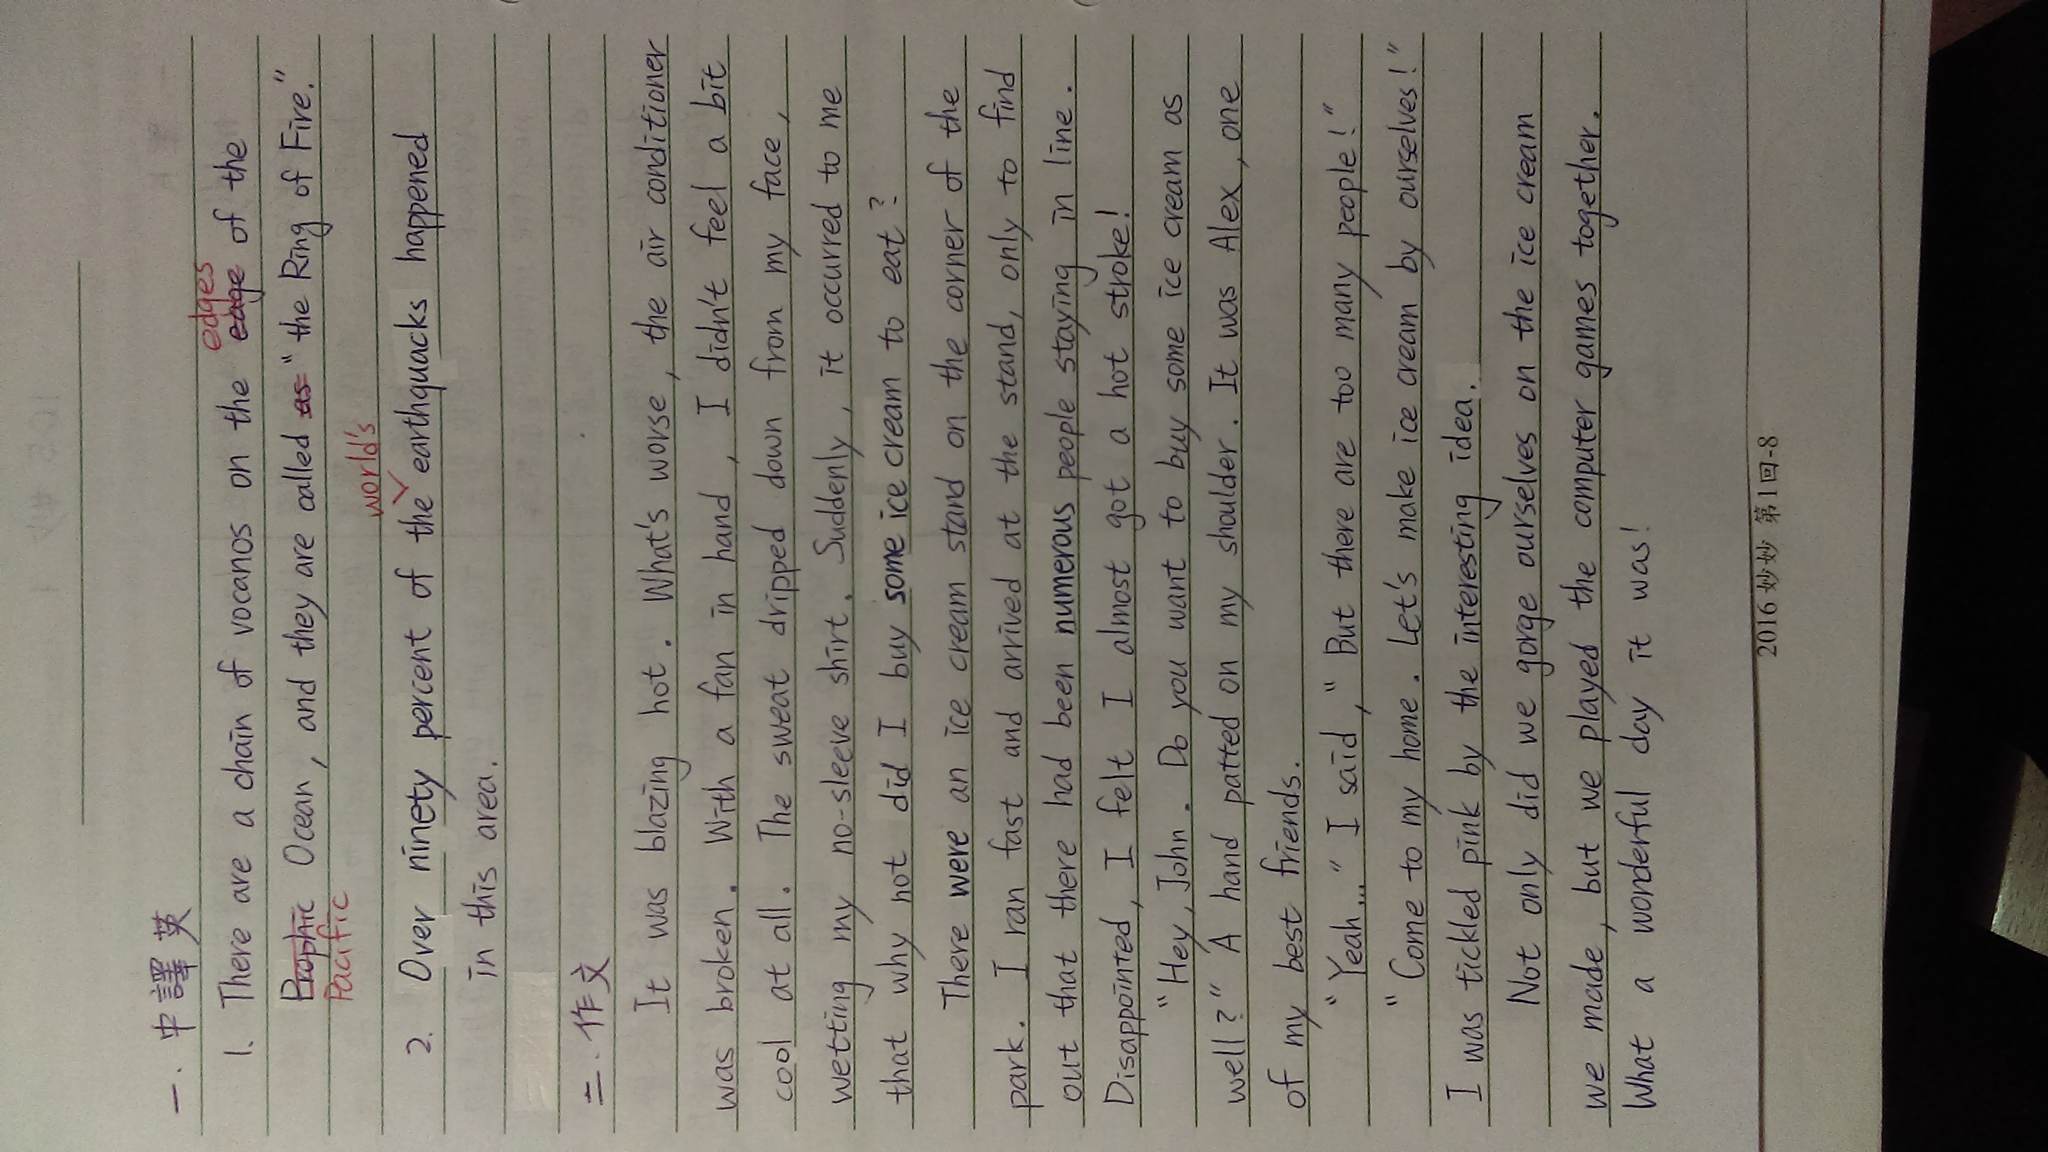 一. 中譯英
1. There are a chain of vocanos on the edge edges of the
Ocean, and they are called as "the Ring of Fire."
Pacific
world's
2. Over ninety percent of the earthquacks happened
in this area.
二. 作文
It was blazing hot. What's worse, the air conditioner
was broken. With a fan in hand, I didn't feel a bit
cool at all. The sweat dripped down from my face,
wetting my no-sleeve shirt. Suddenly, it occurred to me
that why not did I buy some ice cream to eat?
There were an ice cream stand on the corner of the
park. I ran fast and arrived at the stand, only to find
out that there had been numerous people staying in line.
Disappointed, I felt I almost got a hot stroke!
"Hey, John. Do you want to buy some ice cream as
well?" A hand patted on my shoulder. It was Alex, one
of my best friends.
"Yeah..." I said, "But there are too many people!"
"Come to my home. Let's make ice cream by ourselves!"
I was tickled pink by the interesting idea.
Not only did we gorge ourselves on the ice cream
we made, but we played the computer games together.
What a wonderful day it was!
2016 妙妙 第1回-8